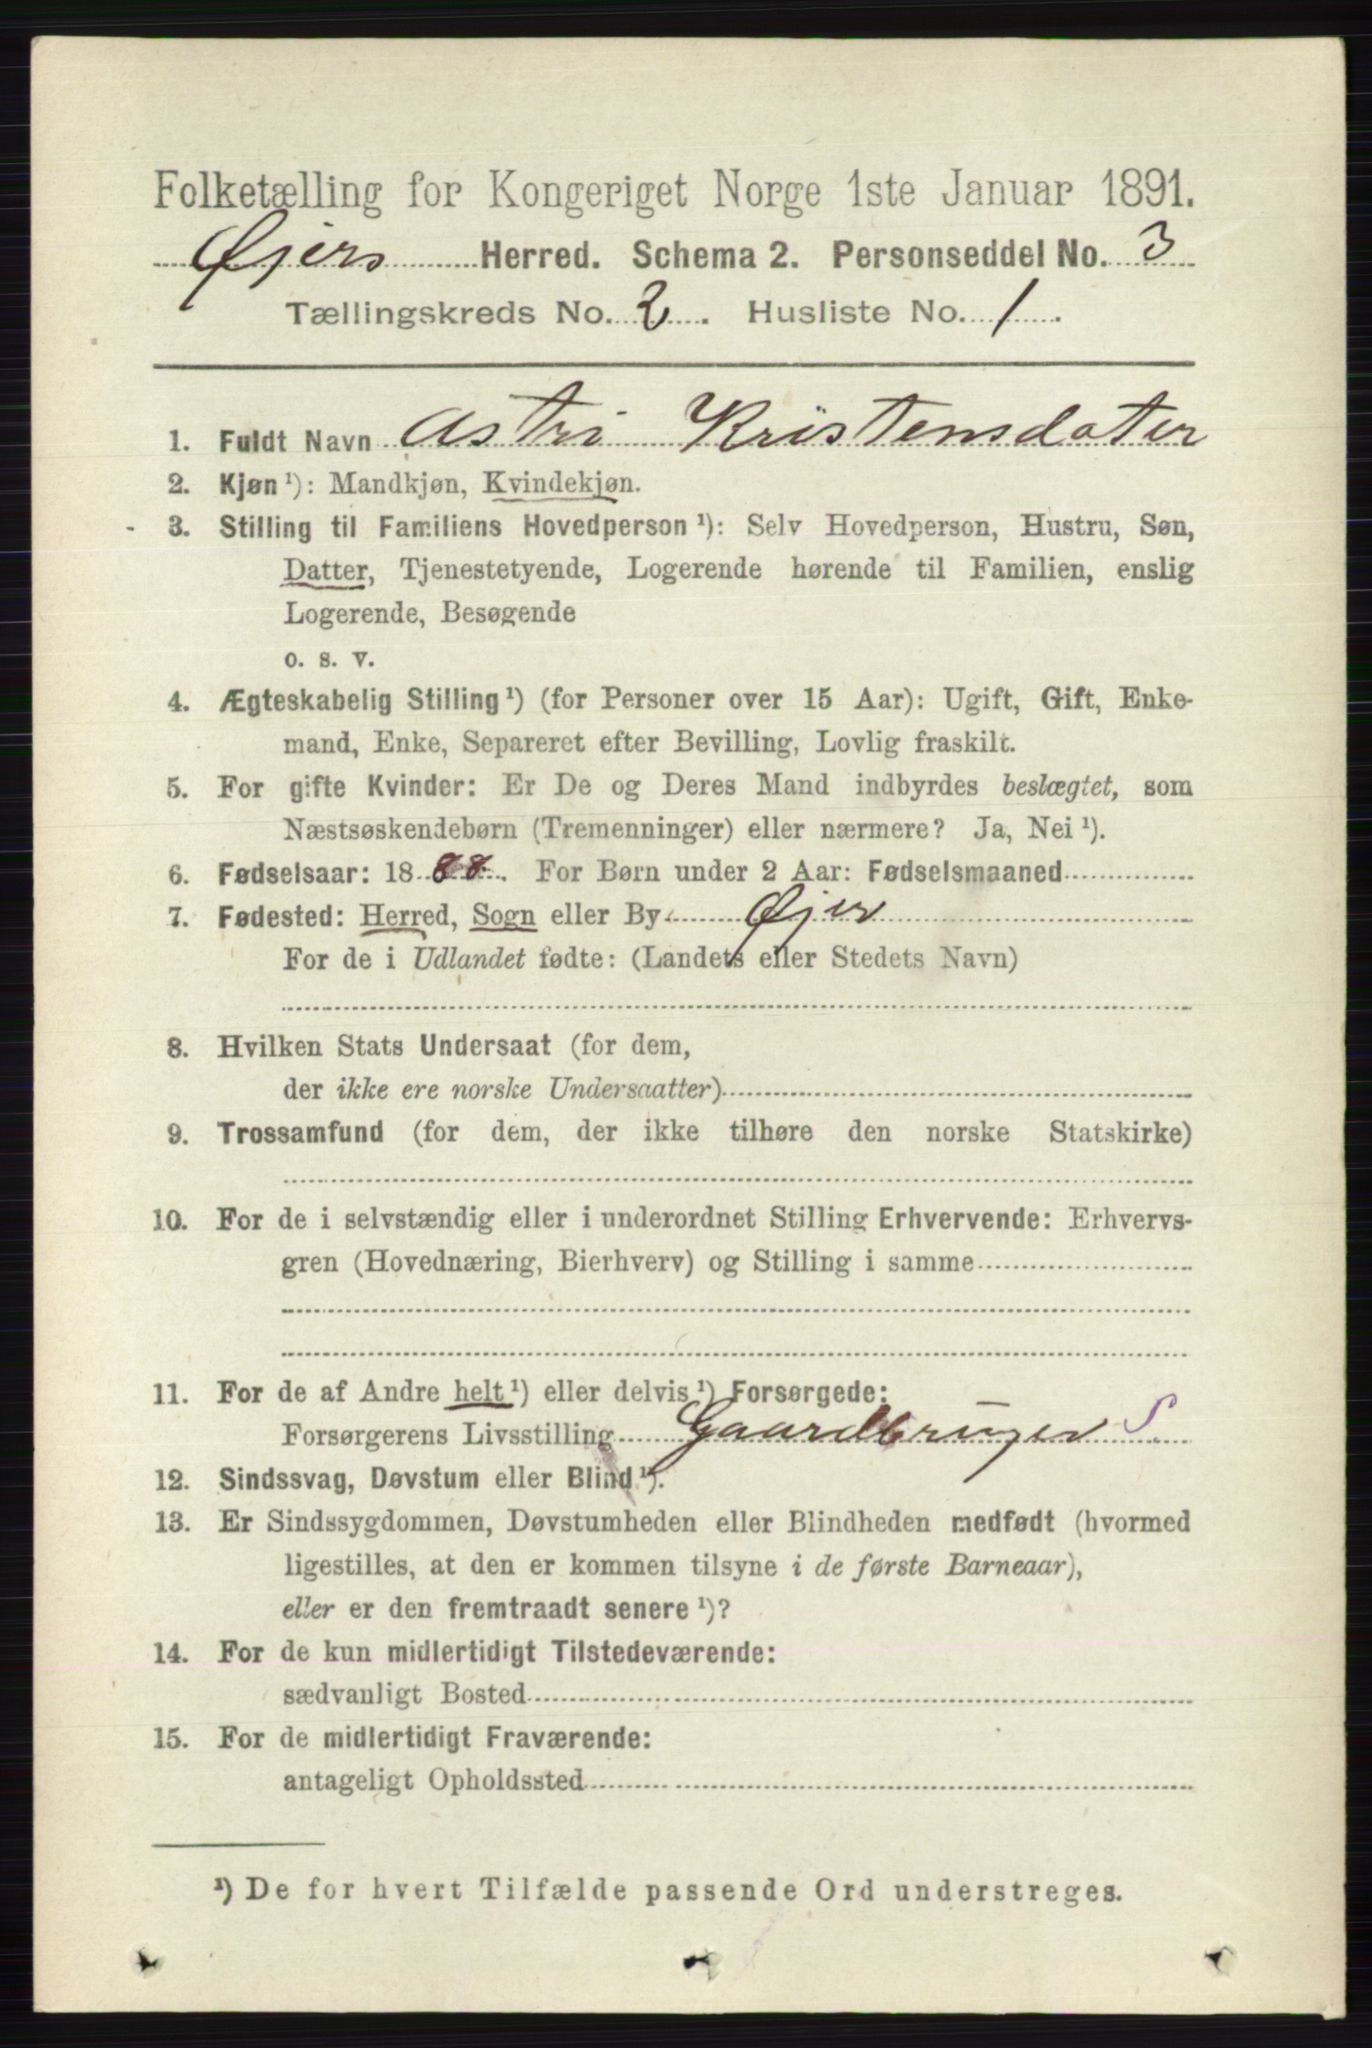 Folketælling for Kongeriget Norge 1ste Januar 1891.
Øjers Herred. Schema 2. Personseddel No. 3
Tællingskreds No. 2. Husliste No. 1.
1. Fuldt Navn Astri Kristensdater
2. Kjøn ¹): Mandkjøn, Kvindekjøn.
3. Stilling til Familiens Hovedperson ¹): Selv Hovedperson, Hustru, Søn,
Datter, Tjenestetyende, Logerende hørende til Familien, enslig
Logerende, Besøgende
o. s. v.
4. Ægteskabelig Stilling ¹) (for Personer over 15 Aar): Ugift, Gift, Enke-
mand, Enke, Separeret efter Bevilling, Lovlig fraskilt.
5. For gifte Kvinder: Er De og Deres Mand indbyrdes beslægtet, som
Næstsøskendebørn (Tremenninger) eller nærmere? Ja, Nei ¹).
6. Fødselsaar: 1888. For Børn under 2 Aar: Fødselsmaaned
7. Fødested: Herred, Sogn eller By Øjer
For de i Udlandet fødte: (Landets eller Stedets Navn)
8. Hvilken Stats Undersaat (for dem,
der ikke ere norske Undersaatter)
9. Trossamfund (for dem, der ikke tilhøre den norske Statskirke)
10. For de i selvstændig eller i underordnet Stilling Erhvervende: Erhvervs-
gren (Hovednæring, Bierhverv) og Stilling i samme
11. For de af Andre helt ¹) eller delvis ¹) Forsørgede:
Forsørgerens Livsstilling Gaardbruger S
12. Sindssvag, Døvstum eller Blind ¹).
13. Er Sindssygdommen, Døvstumheden eller Blindheden medfødt (hvormed
ligestilles, at den er kommen tilsyne i de første Barneaar),
eller er den fremtraadt senere ¹)?
14. For de kun midlertidigt Tilstedeværende:
sædvanligt Bosted
15. For de midlertidigt Fraværende:
antageligt Opholdssted
¹) De for hvert Tilfælde passende Ord understreges.